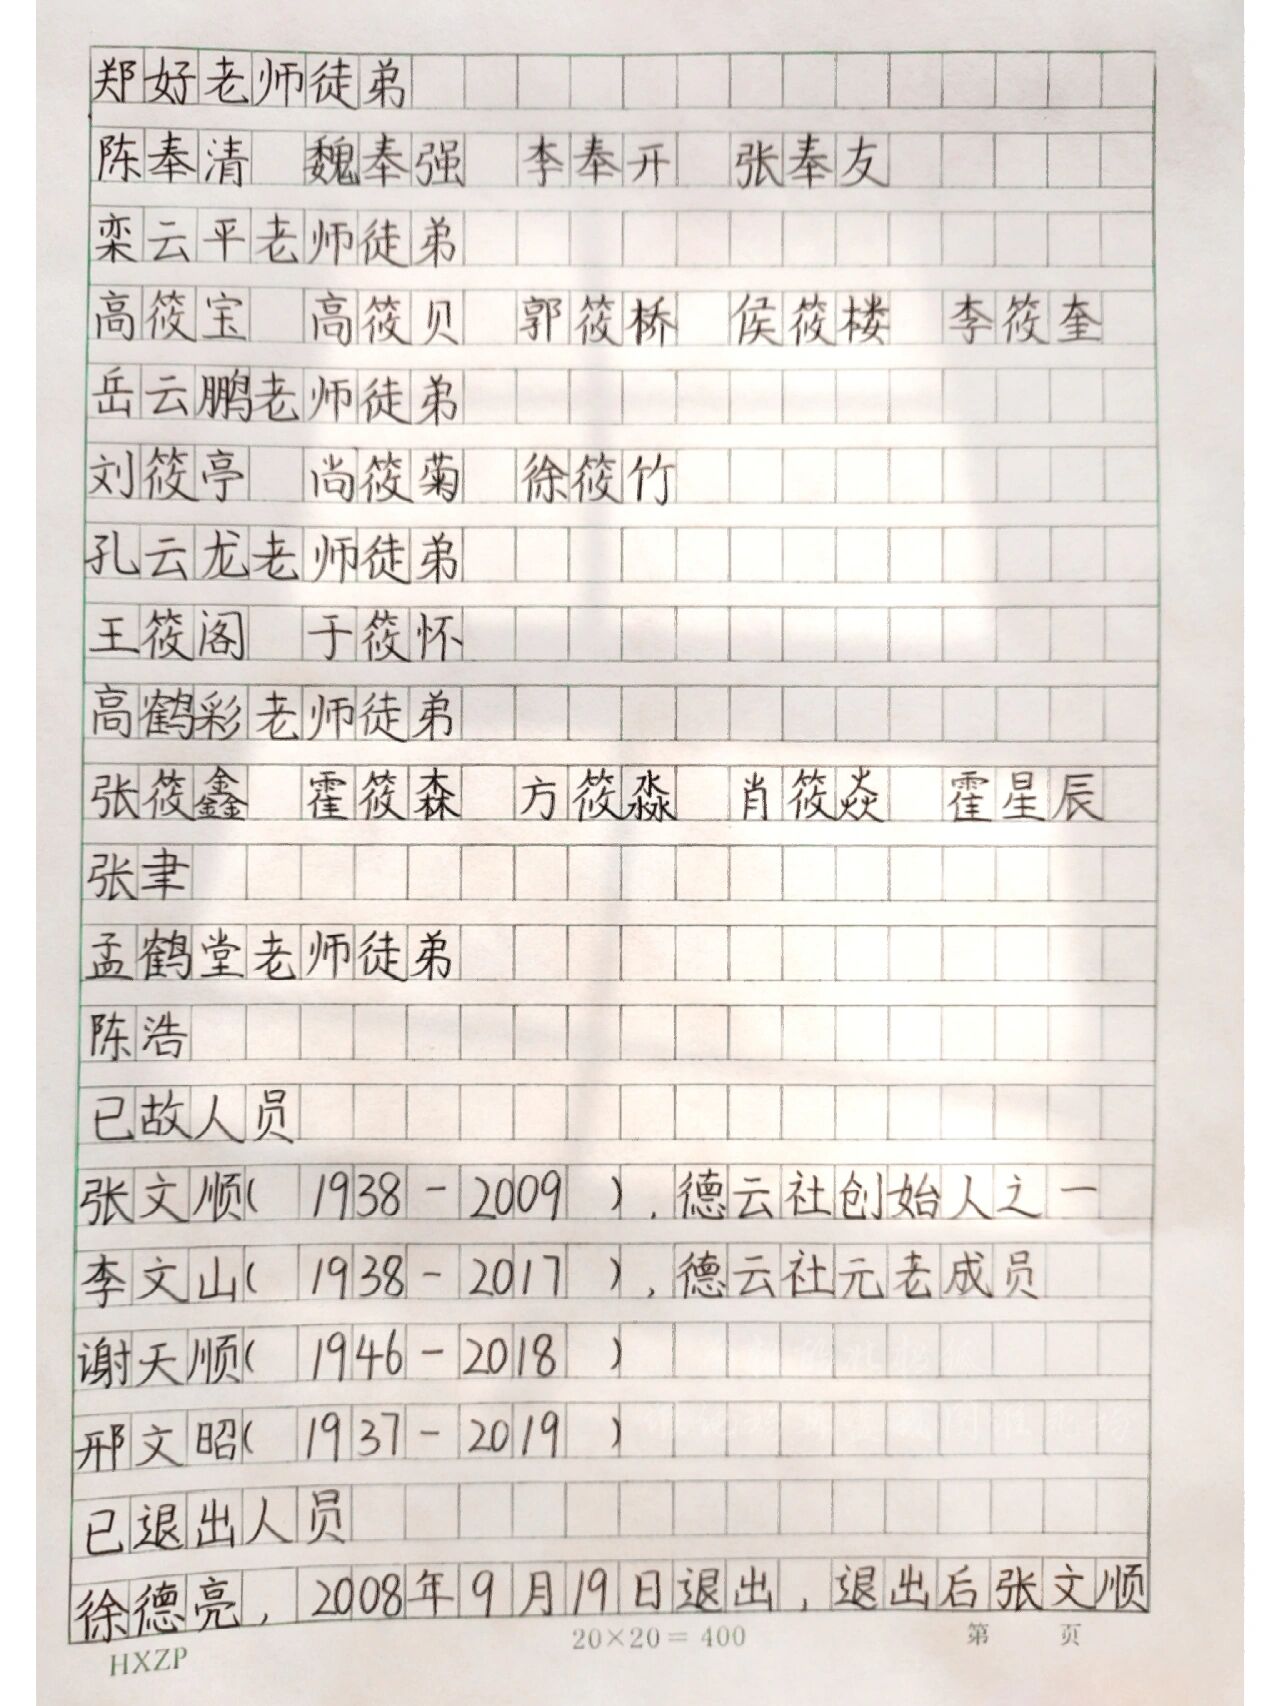 郑好老师徒弟
陈奉清 魏奉强 李奉开 张奉友
栾云平老师徒弟
高筱宝 高筱贝 郭筱桥 侯筱楼 李筱奎
岳云鹏老师徒弟
刘筱亭 尚筱菊 徐筱竹
孔云龙老师徒弟
王筱阁 于筱怀
高鹤彩老师徒弟
张筱鑫 霍筱森 方筱淼 肖筱焱 霍星辰
张聿
孟鹤堂老师徒弟
陈浩
已故人员
张文顺( 1938-2009 ),德云社创始人之一
李文山( 1938-2017 ),德云社元老成员
谢天顺( 1946-2018 )
邢文昭( 1937-2019 )
已退出人员
徐德亮,2008年9月19日退出,退出后张文顺
HXZP 20×20=400 第 页